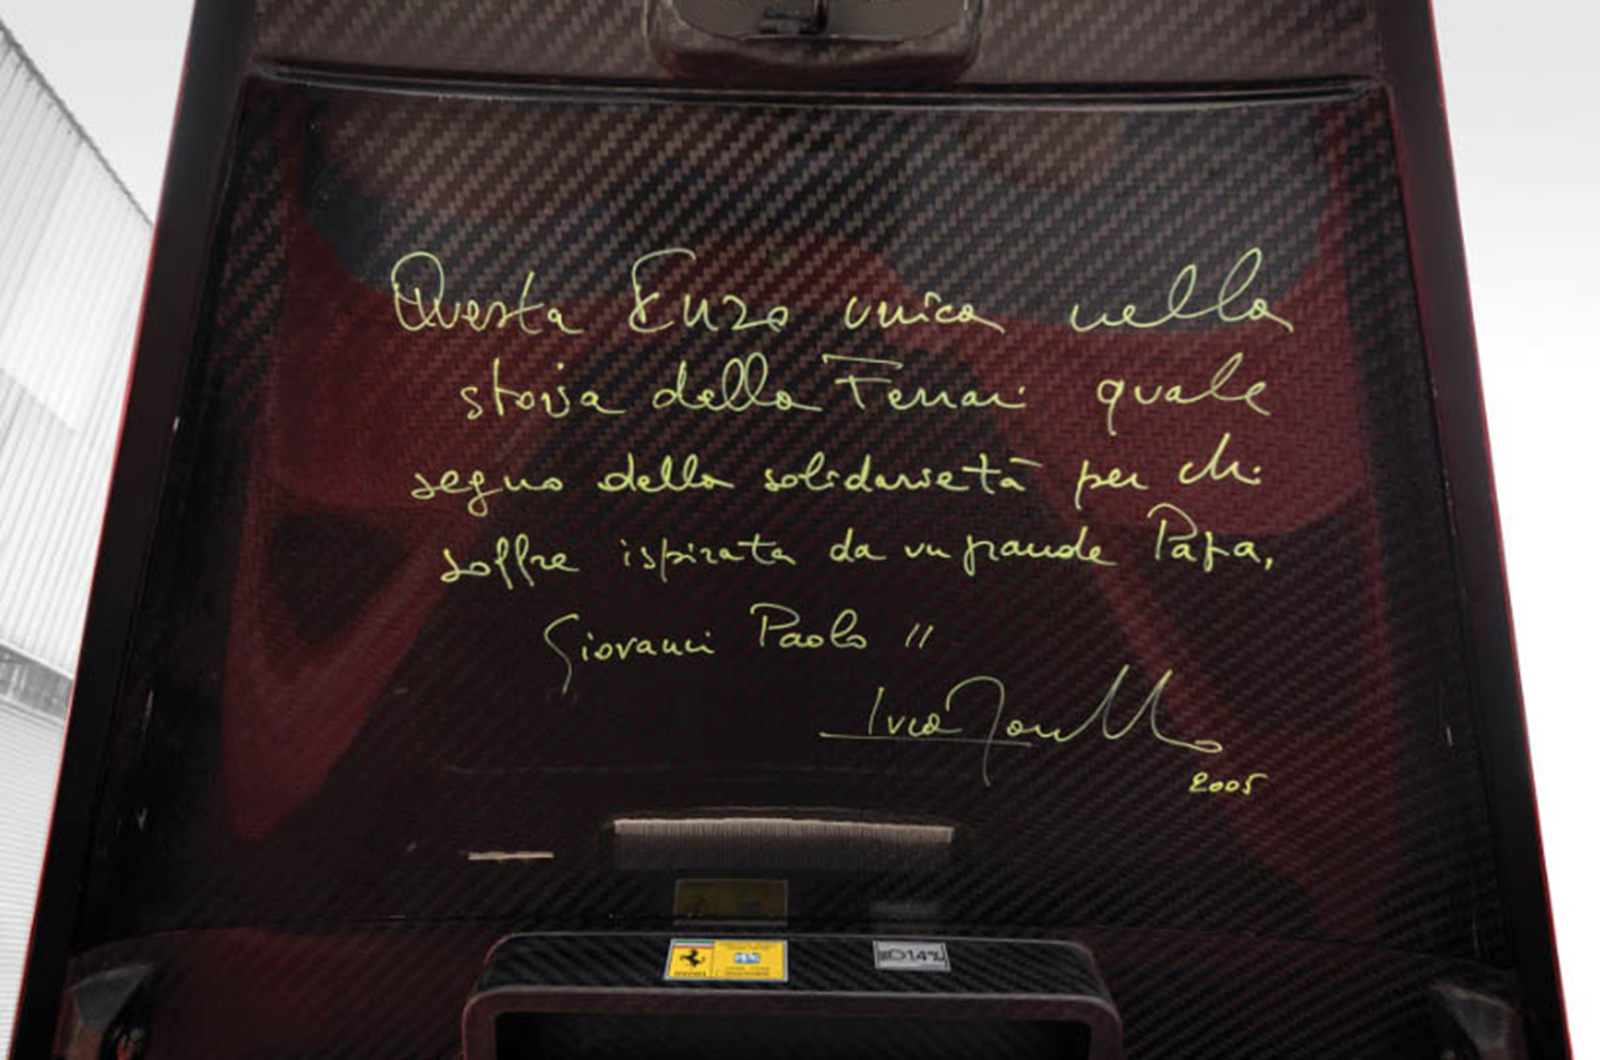 Questa Enzo unica nella
storia della Ferrari quale
segno della solidarietà per chi
soffre ispirata da un grande Papa,
Giovanni Paolo II
Luca Montezemolo
2005
14%